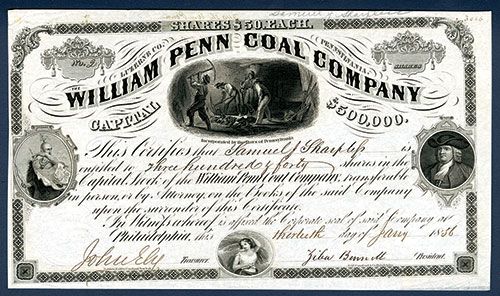 SHARES $50, EACH.
No. 2
LUZERNE CO.
PENNSYLVANIA.
SHARES
THE
WILLIAM PENN COAL COMPANY
CAPITAL
$500,000.
Incorporated by the State of Pennsylvania
This Certifies that Samuel J Sharpless is
entitled to Three hundred & forty shares in the
Capital Stock of the William Penn Coal Company, transferable
in person, or by Attorney, on the Books of the said Company
upon the surrender of this Certificate.
In Witness whereof is affixed the Corporate seal of said Company at
Philadelphia, this day of Jany 1856
John Ely Treasurer Ziba Bennett President.